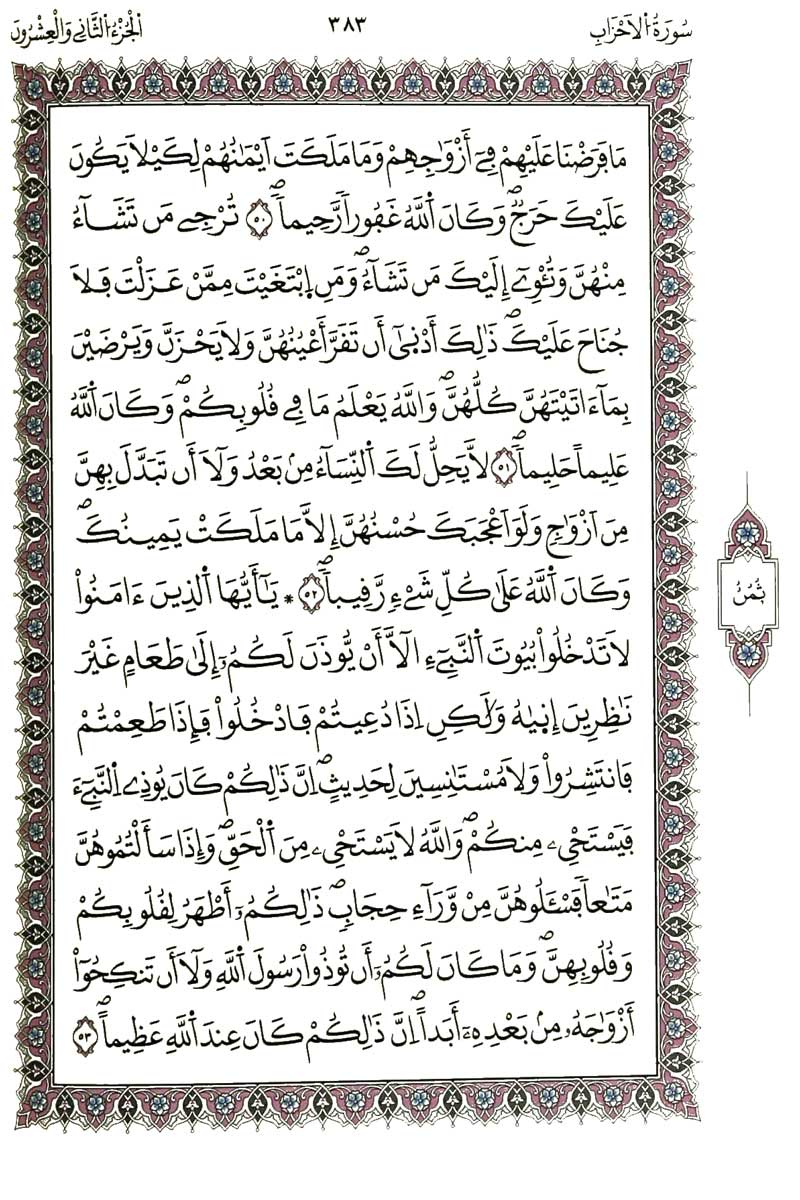 سُورَةُ الْأَحْزَابِ
٣٨٣
الْجُزْءُ الثَّانِي وَالْعِشْرُونَ
مَا فَرَضْنَا عَلَيْهِمْ فِےٓ أَزْوَٰجِهِمْ وَمَا مَلَكَتَ اَيْمَٰنُهُمْ لِكَيْلَا يَكُونَ
عَلَيْكَ حَرَجٌۖ وَكَانَ اَللَّهُ غَفُوراٗ رَّحِيماٗۖ ٥٠ تُرْجِے مَن تَشَآءُ
مِنْهُنَّ وَتُـْٔوِےٓ إِلَيْكَ مَن تَشَآءُۖ وَمَنِ اِبْتَغَيْتَ مِمَّنْ عَزَلْتَ فَلَا
جُنَاحَ عَلَيْكَۖ ذَٰلِكَ أَدْنۭيٰٓ أَن تَقَرَّ أَعْيُنُهُنَّ وَلَا يَحْزَنَّ وَيَرْضَيْنَ
بِمَآ ءَاتَيْتَهُنَّ كُلُّهُنَّۖ وَاللَّهُ يَعْلَمُ مَا فِے قُلُوبِكُمْۖ وَكَانَ اَللَّهُ
عَلِيماً حَلِيماٗۖ ٥١ لَّا يَحِلُّ لَكَ اَلنِّسَآءُ مِنۢ بَعْدُ وَلَآ أَن تَبَدَّلَ بِهِنَّ
مِنَ اَزْوَٰجٖ وَلَوَ اَعْجَبَكَ حُسْنُهُنَّ إِلَّا مَا مَلَكَتْ يَمِينُكَۖ
وَكَانَ اَللَّهُ عَلَىٰ كُلِّ شَےْءٖ رَّقِيباٗۖ ٥٢ * يَٰٓأَيُّهَا اَلذِينَ ءَامَنُواْ
لَا تَدْخُلُواْ بُيُوتَ اَلنَّبِےٓءِ الَّآ أَنْ يُّوذَنَ لَكُمُۥٓ إِلَىٰ طَعَامٍ غَيْرَ
نَٰظِرِينَ إِنۭيٰهُ وَلَٰكِنِ اِذَا دُعِيتُمْ فَادْخُلُواْ فَإِذَا طَعِمْتُمْ
فَانتَشِرُواْ وَلَا مُسْتَٰنِسِينَ لِحَدِيثٍۖ اِنَّ ذَٰلِكُمْ كَانَ يُوذِے اِلنَّبِےٓءَ
فَيَسْتَحْيِۦ مِنكُمْۖ وَاللَّهُ لَا يَسْتَحْيِۦ مِنَ اَلْحَقِّۖ وَإِذَا سَأَلْتُمُوهُنَّ
مَتَٰعاٗ فَسْـَٔلُوهُنَّ مِنْ وَّرَآءِ حِجَابٖۖ ذَٰلِكُمُۥٓ أَطْهَرُ لِقُلُوبِكُمْ
وَقُلُوبِهِنَّۖ وَمَا كَانَ لَكُمُۥٓ أَن تُوذُواْ رَسُولَ اَللَّهِ وَلَآ أَن تَنكِحُوٓاْ
أَزْوَٰجَهُۥ مِنۢ بَعْدِهِۦٓ أَبَداًۖ اِنَّ ذَٰلِكُمْ كَانَ عِندَ اَللَّهِ عَظِيماًۖ ٥٣
ثُمُنُ